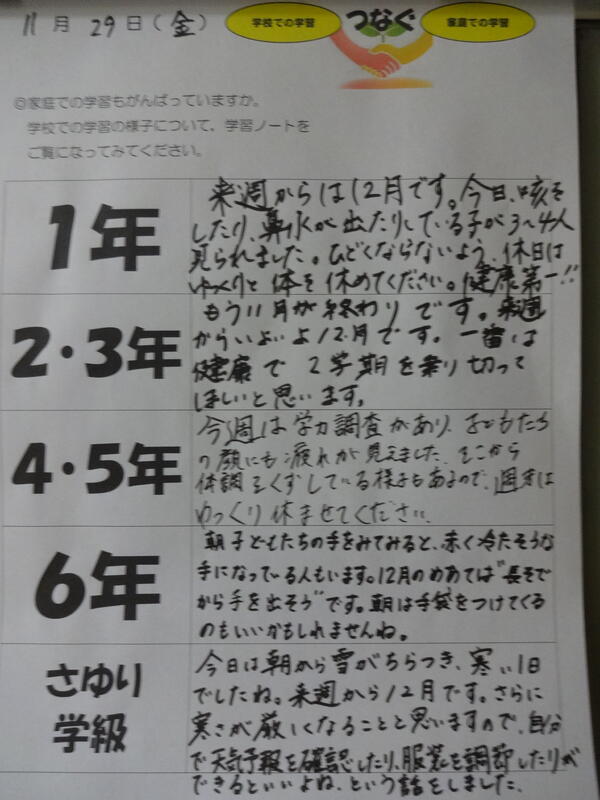 11月29日(金)
学校での学習
つなぐ
家庭での学習
◎家庭での学習もがんばっていますか。
学校での学習の様子について、学習ノートを
ご覧になってみてください。
1年
来週からは12月です。今日、咳を
したり、鼻水が出たりしている子が3〜4人
見られました。ひどくならないよう、休日は
ゆっくりと体を休めてください。健康第一!!
2・3年
もう11月が終わりです。来週
からいよいよ12月です。一番は
健康で2学期を乗り切って
ほしいと思います。
4・5年
今週は学力調査があり、子どもたち
の顔にも疲れが見えました。そこから
体調をくずしている様子もあるので、週末は
ゆっくり休ませてください。
6年
朝子どもたちの手をみてみると、赤く冷たそうな
手になっている人もいます。12月のめあては“長そで
から手を出そう”です。朝は手袋をつけてくる
のもいいかもしれませんね。
さゆり
学級
今日は朝から雪がちらつき、寒い1日
でしたね。来週から12月です。さらに
寒さが厳しくなることと思いますので、自分
で天気予報を確認したり、服装を調節したりが
できるといいよね、という話をしました。